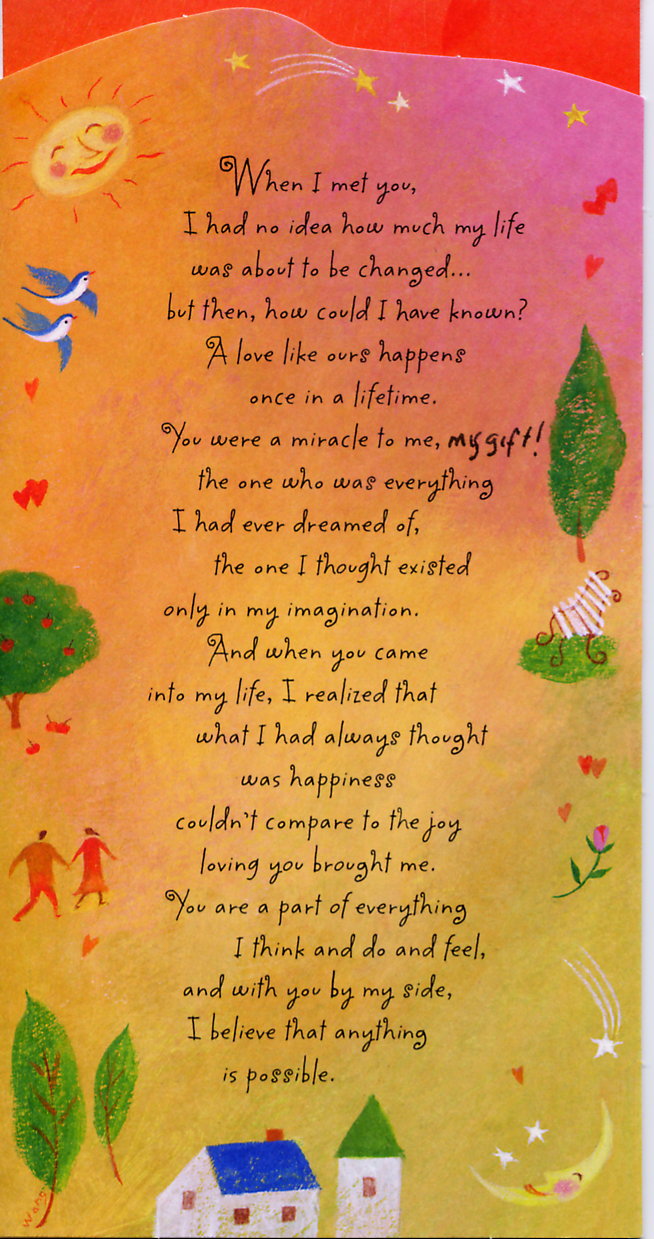 When I met you,
I had no idea how much my life
was about to be changed...
but then, how could I have known?
A love like ours happens
once in a lifetime.
You were a miracle to me, my gift!
the one who was everything
I had ever dreamed of,
the one I thought existed
only in my imagination.
And when you came
into my life, I realized that
what I had always thought
was happiness
couldn't compare to the joy
loving you brought me.
You are a part of everything
I think and do and feel,
and with you by my side,
I believe that anything
is possible.
Wang